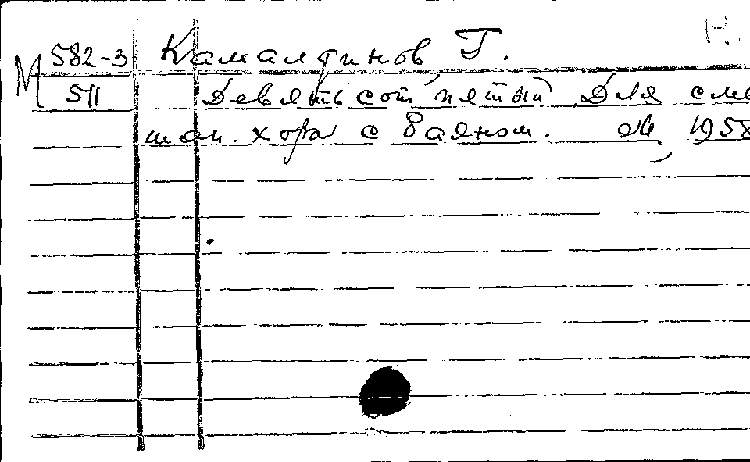 Н.
М 582-3 Камалдинов Г.
511 Девятьсот пятый. Для сме
шан. хора с баяном. М, 1958